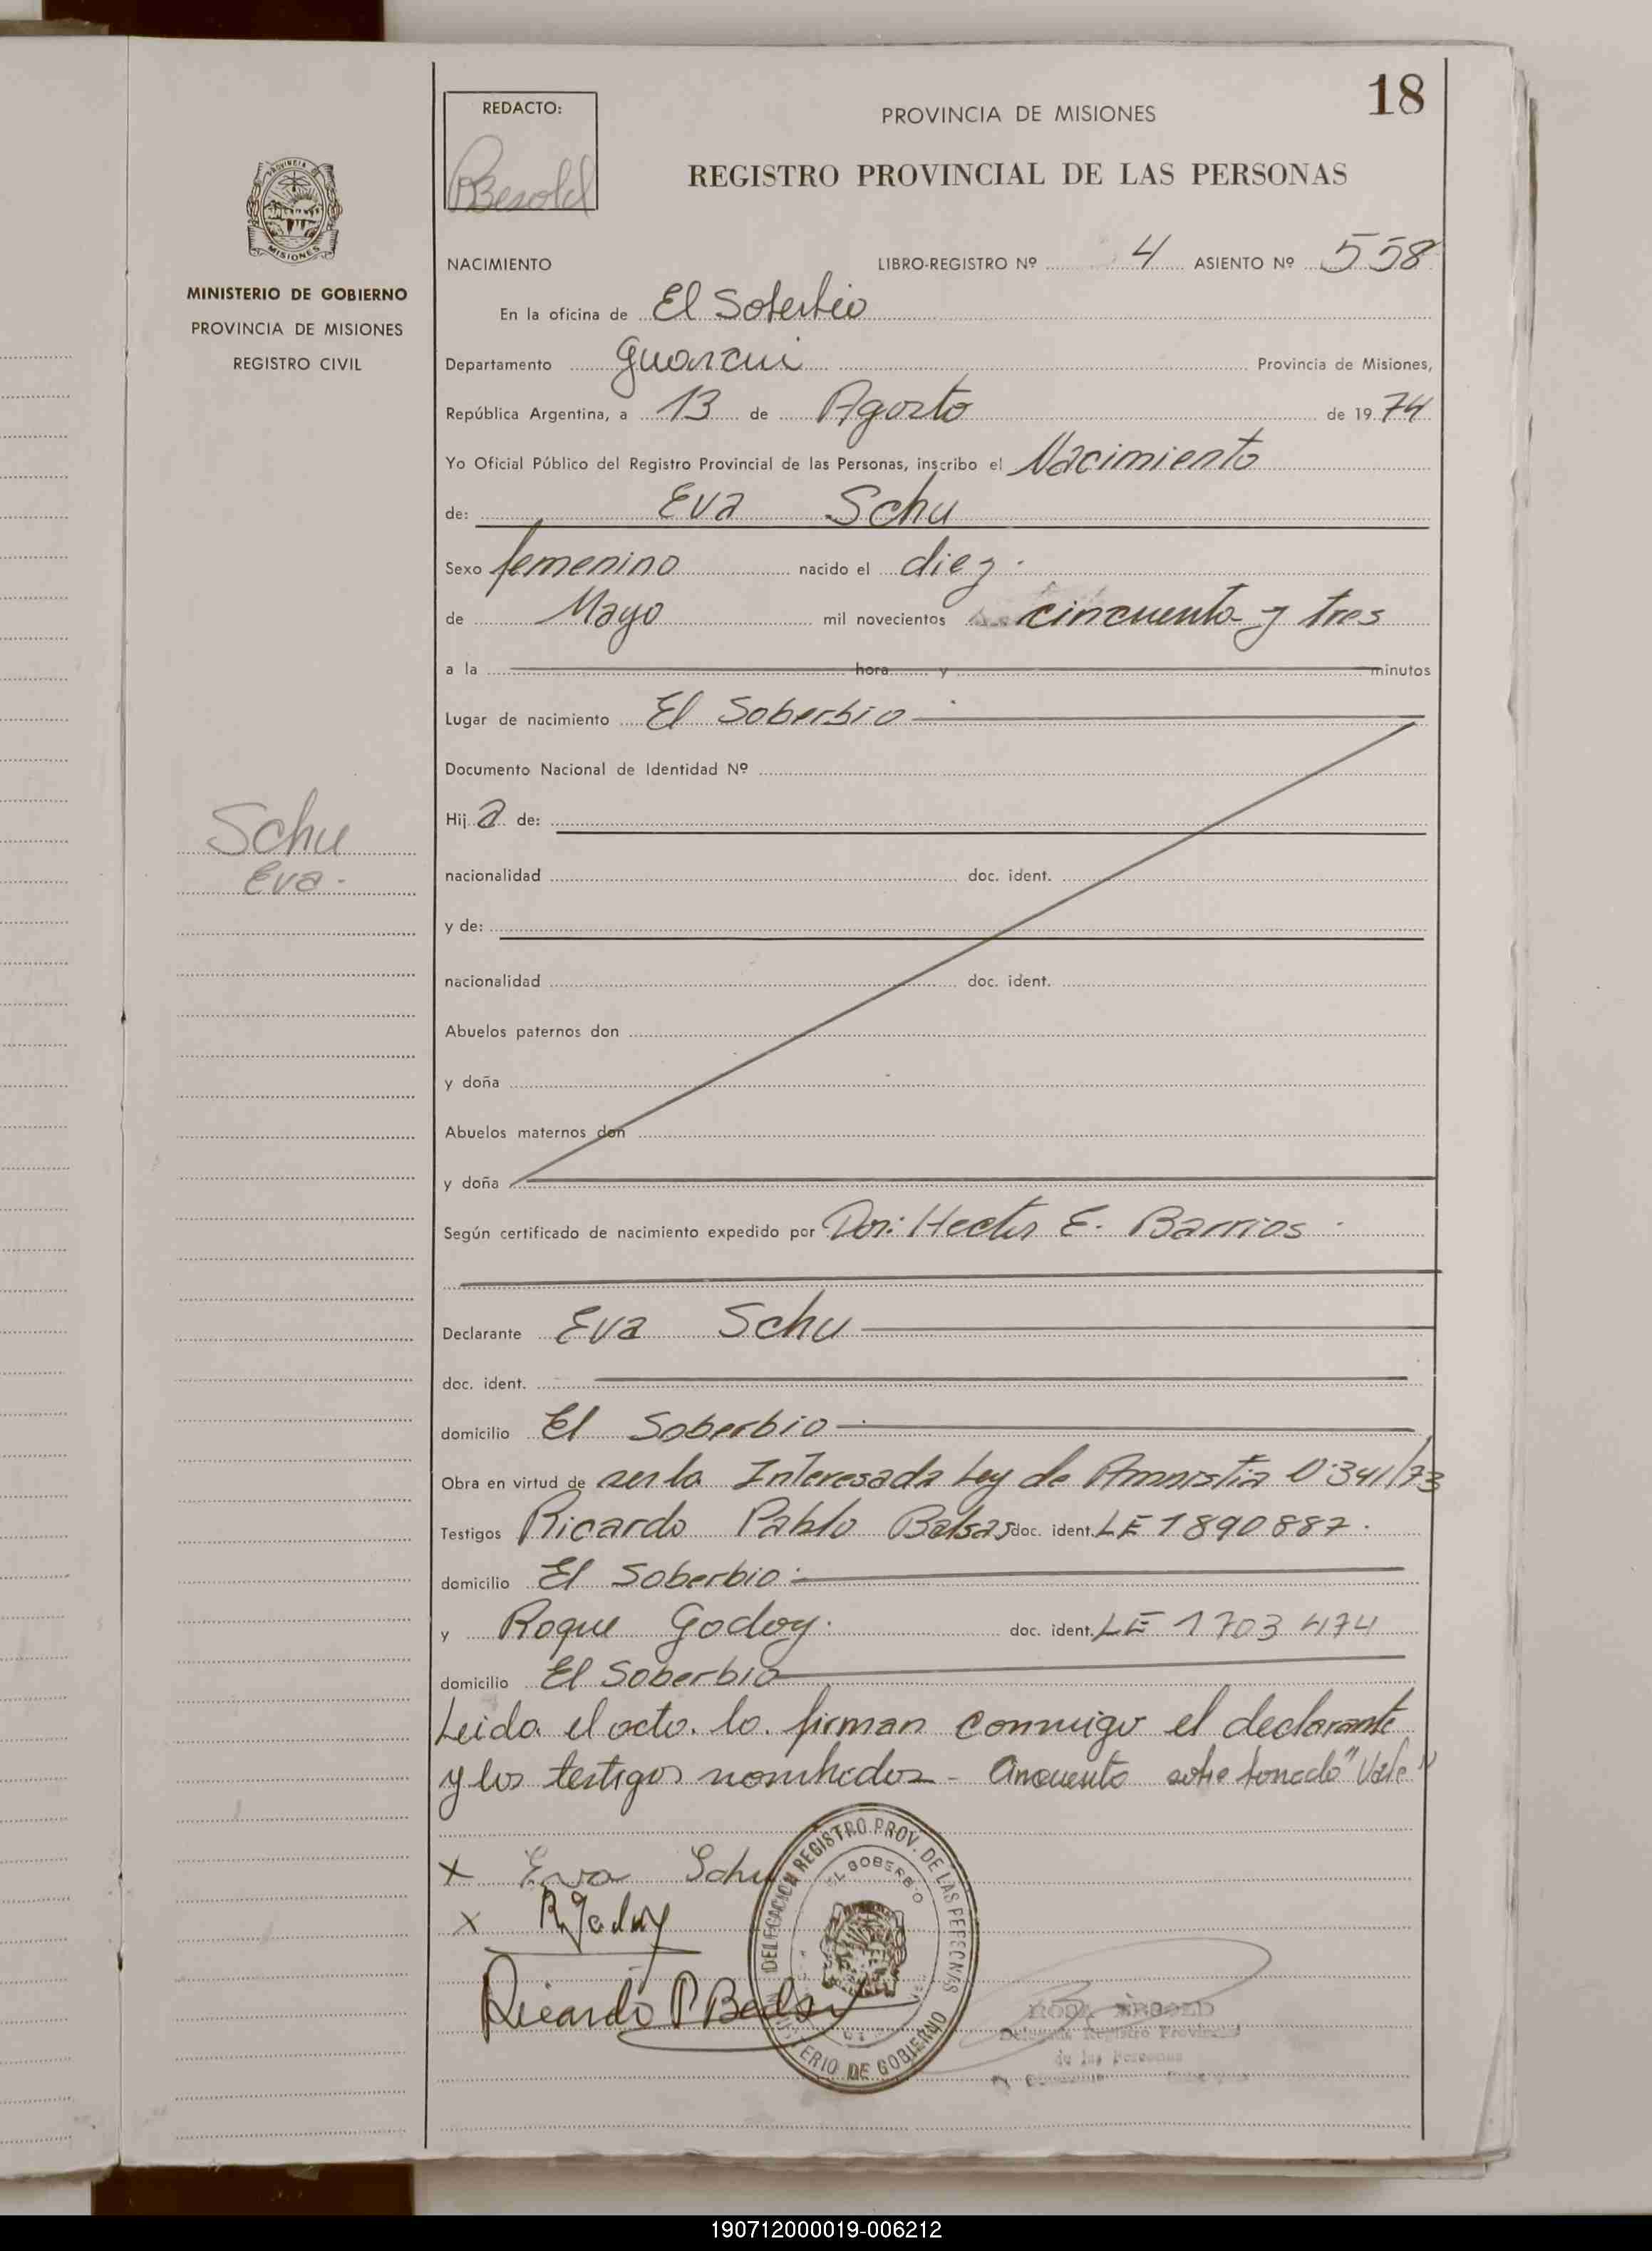 18
REDACTO:
PROVINCIA DE MISIONES
RBesold
REGISTRO PROVINCIAL DE LAS PERSONAS
PROVINCIA
MISIONES
NACIMIENTO LIBRO-REGISTRO Nº 4 ASIENTO Nº 558
MINISTERIO DE GOBIERNO
PROVINCIA DE MISIONES
REGISTRO CIVIL
En la oficina de El Soberbio
Departamento Guarani Provincia de Misiones,
República Argentina, a 13 de Agosto de 1974
Yo Oficial Público del Registro Provincial de las Personas, inscribo el Nacimiento
de: Eva Schu
Sexo femenino nacido el diez.
de Mayo mil novecientos cincuenta y tres
a la hora y minutos
Lugar de nacimiento El Soberbio
Documento Nacional de Identidad Nº
Schu
Eva.-
Hij a de:
nacionalidad doc. ident.
y de:
nacionalidad doc. ident.
Abuelos paternos don
y doña
Abuelos maternos don
y doña
Según certificado de nacimiento expedido por Dor: Hector E. Barrios
Declarante Eva Schu
doc. ident.
domicilio El Soberbio
Obra en virtud de ser la Interesada Ley de Amnistia 0.341/73
Testigos Ricardo Pablo Balsas doc. ident. LE 1890887.
domicilio El Soberbio
y Roque Godoy. doc. ident. LE 1703474
domicilio El Soberbio
Leida el acto. lo. firman conmigo el declarante
y los testigos nombrados - Cincuenta sobre borrado "Vale"
x Eva Schu
x R. Godoy
Ricardo P Balsas
DELEGACION REGISTRO PROV. DE LAS PERSONAS
EL SOBERBIO
MINISTERIO DE GOBIERNO
Registro Provincial
de las Personas
190712000019-006212